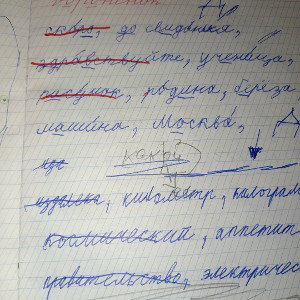 скоро, до свиданья,
здравствуйте, ученица,
рисунок, родина, берёза,
машина, Москва,
издалека, километр, килограм
космический, аппетит
правительство, электричес